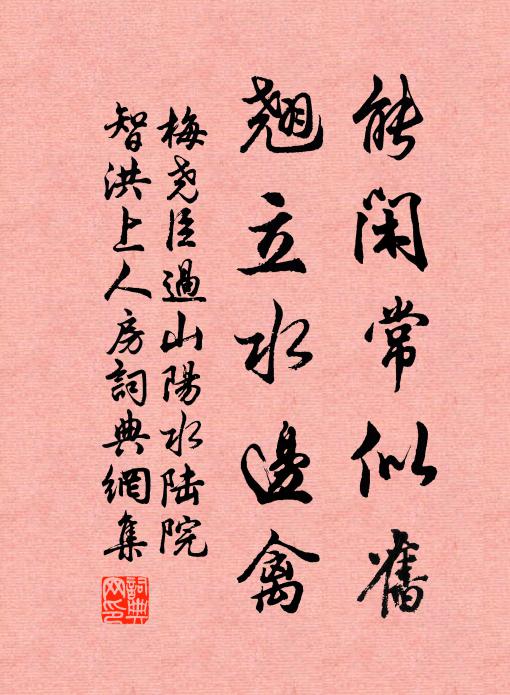 能閑常似舊
翹立水邊禽
梅堯臣過山陽水陸院
智洪上人房詞典網集
詞典网印